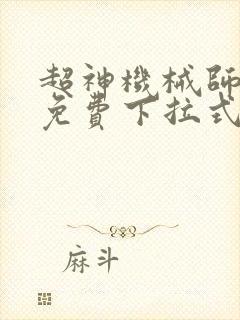 超神機械師
免費下拉式
麻斗